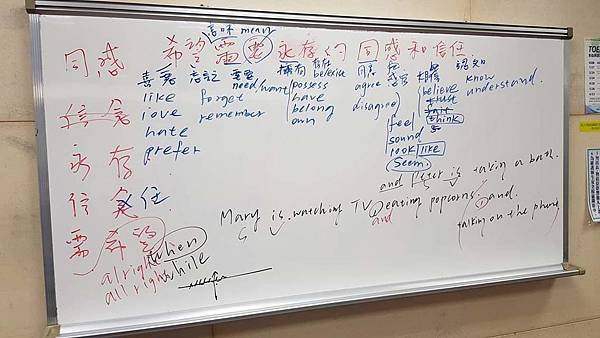 意味 mean
同感 希望需要永存的同感和信任.
喜惡 忘記 需要 擁有 信任 同意 感官 相信 認知
need/want believe
like forget possess agree believe know
love remember have disagree trust understand.
hate belong feel think
prefer own sound
look like
seem.
信念
永存
信念 任.
需希望
and Peter is taking a bath.
Mary is watching TV, eating popcorns. and.
and talking on the phone
alright when
all right while
TOE